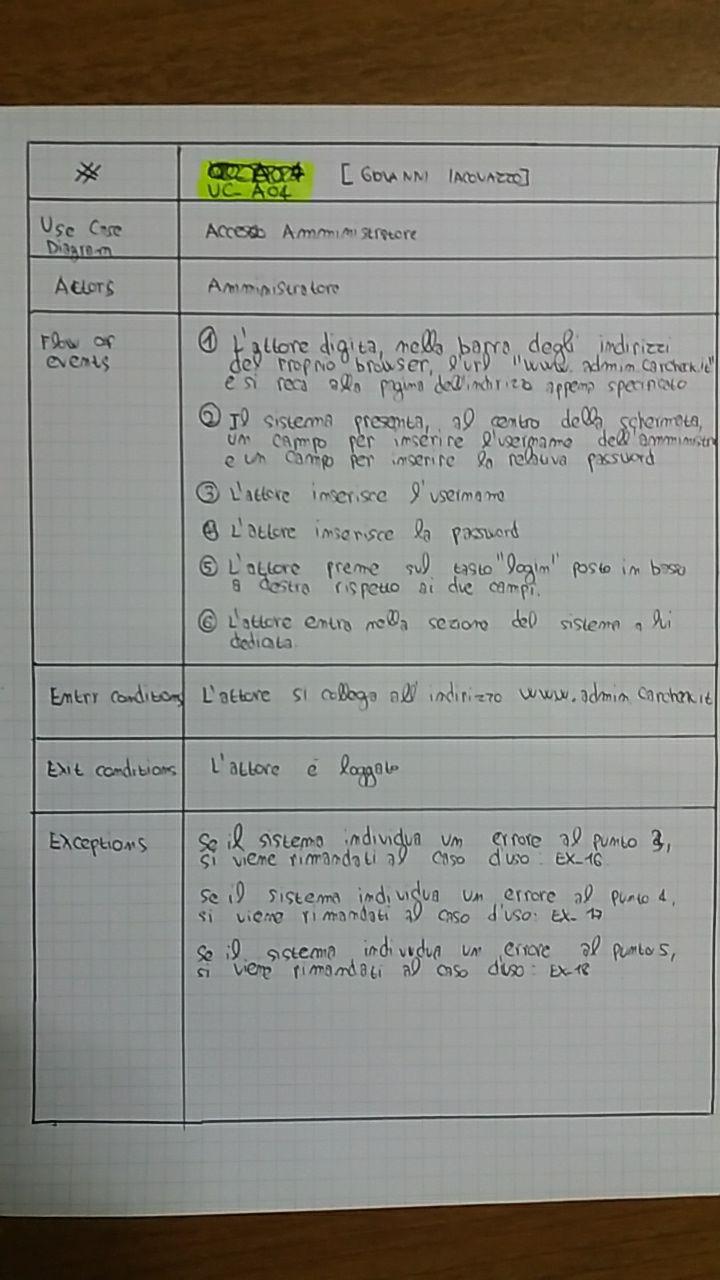 #
UC-A04 [GIOVANNI IACOVAZZO]
Use Case
Diagram
Accesso Amministratore
Actors
Amministratore
Flow of
events
① L'attore digita, nella barra degli indirizzi
del proprio browser, l'url "www.admin.carchek.it"
e si reca alla pagina dell'indirizzo appena specificato
② Il sistema presenta, al centro della schermata,
un campo per inserire l'username dell'amministr
e un campo per inserire la relativa password
③ L'attore inserisce l'username
④ L'attore inserisce la password
⑤ L'attore preme sul tasto "login" posto in basso
a destra rispetto ai due campi.
⑥ L'attore entra nella sezione del sistema a lui
dedicata.
Entry conditions
L'attore si collega all'indirizzo www.admin.carchek.it
Exit conditions
L'attore è loggato
Exceptions
Se il sistema individua un errore al punto 3,
si viene rimandati al caso d'uso: EX-16
Se il sistema individua un errore al punto 4,
si viene rimandati al caso d'uso: EX-17
Se il sistema individua un errore al punto 5,
si viene rimandati al caso d'uso: EX-18